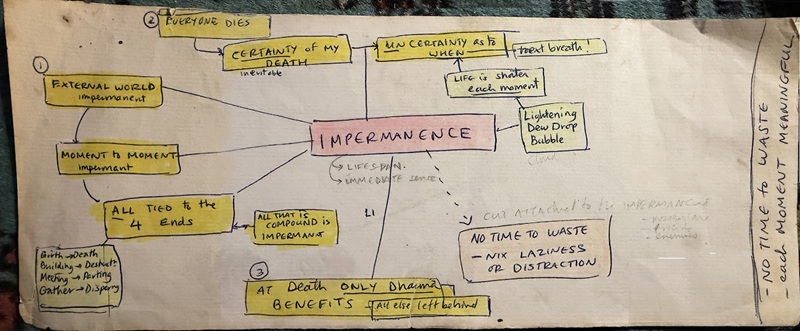 ② EVERYONE DIES
CERTAINTY of MY
DEATH
inevitable
UNCERTAINTY as to
WHEN
next breath!
LIFE is shorter
each moment
Lightening
Dew Drop
Bubble
Cloud
①
EXTERNAL WORLD
impermanent
MOMENT to MOMENT
impermant
ALL TIED to the
4 ENDS
Birth → Death
Building → Destruct?
Meeting → Parting
Gather → Dispersy
ALL THAT IS
COMPOUND is
IMPERMANT
IMPERMANENCE
→ LIFESPAN.
→ IMMEDIATE sense
LI
③
AT Death ONLY Dharma
BENEFITS
All else left behind
CUT ATTACHMENT to the IMPERMANENCE
NO TIME TO WASTE
- NIX LAZINESS
OR DISTRACTION
- NO TIME to WASTE
- each MOMENT MEANINGFUL